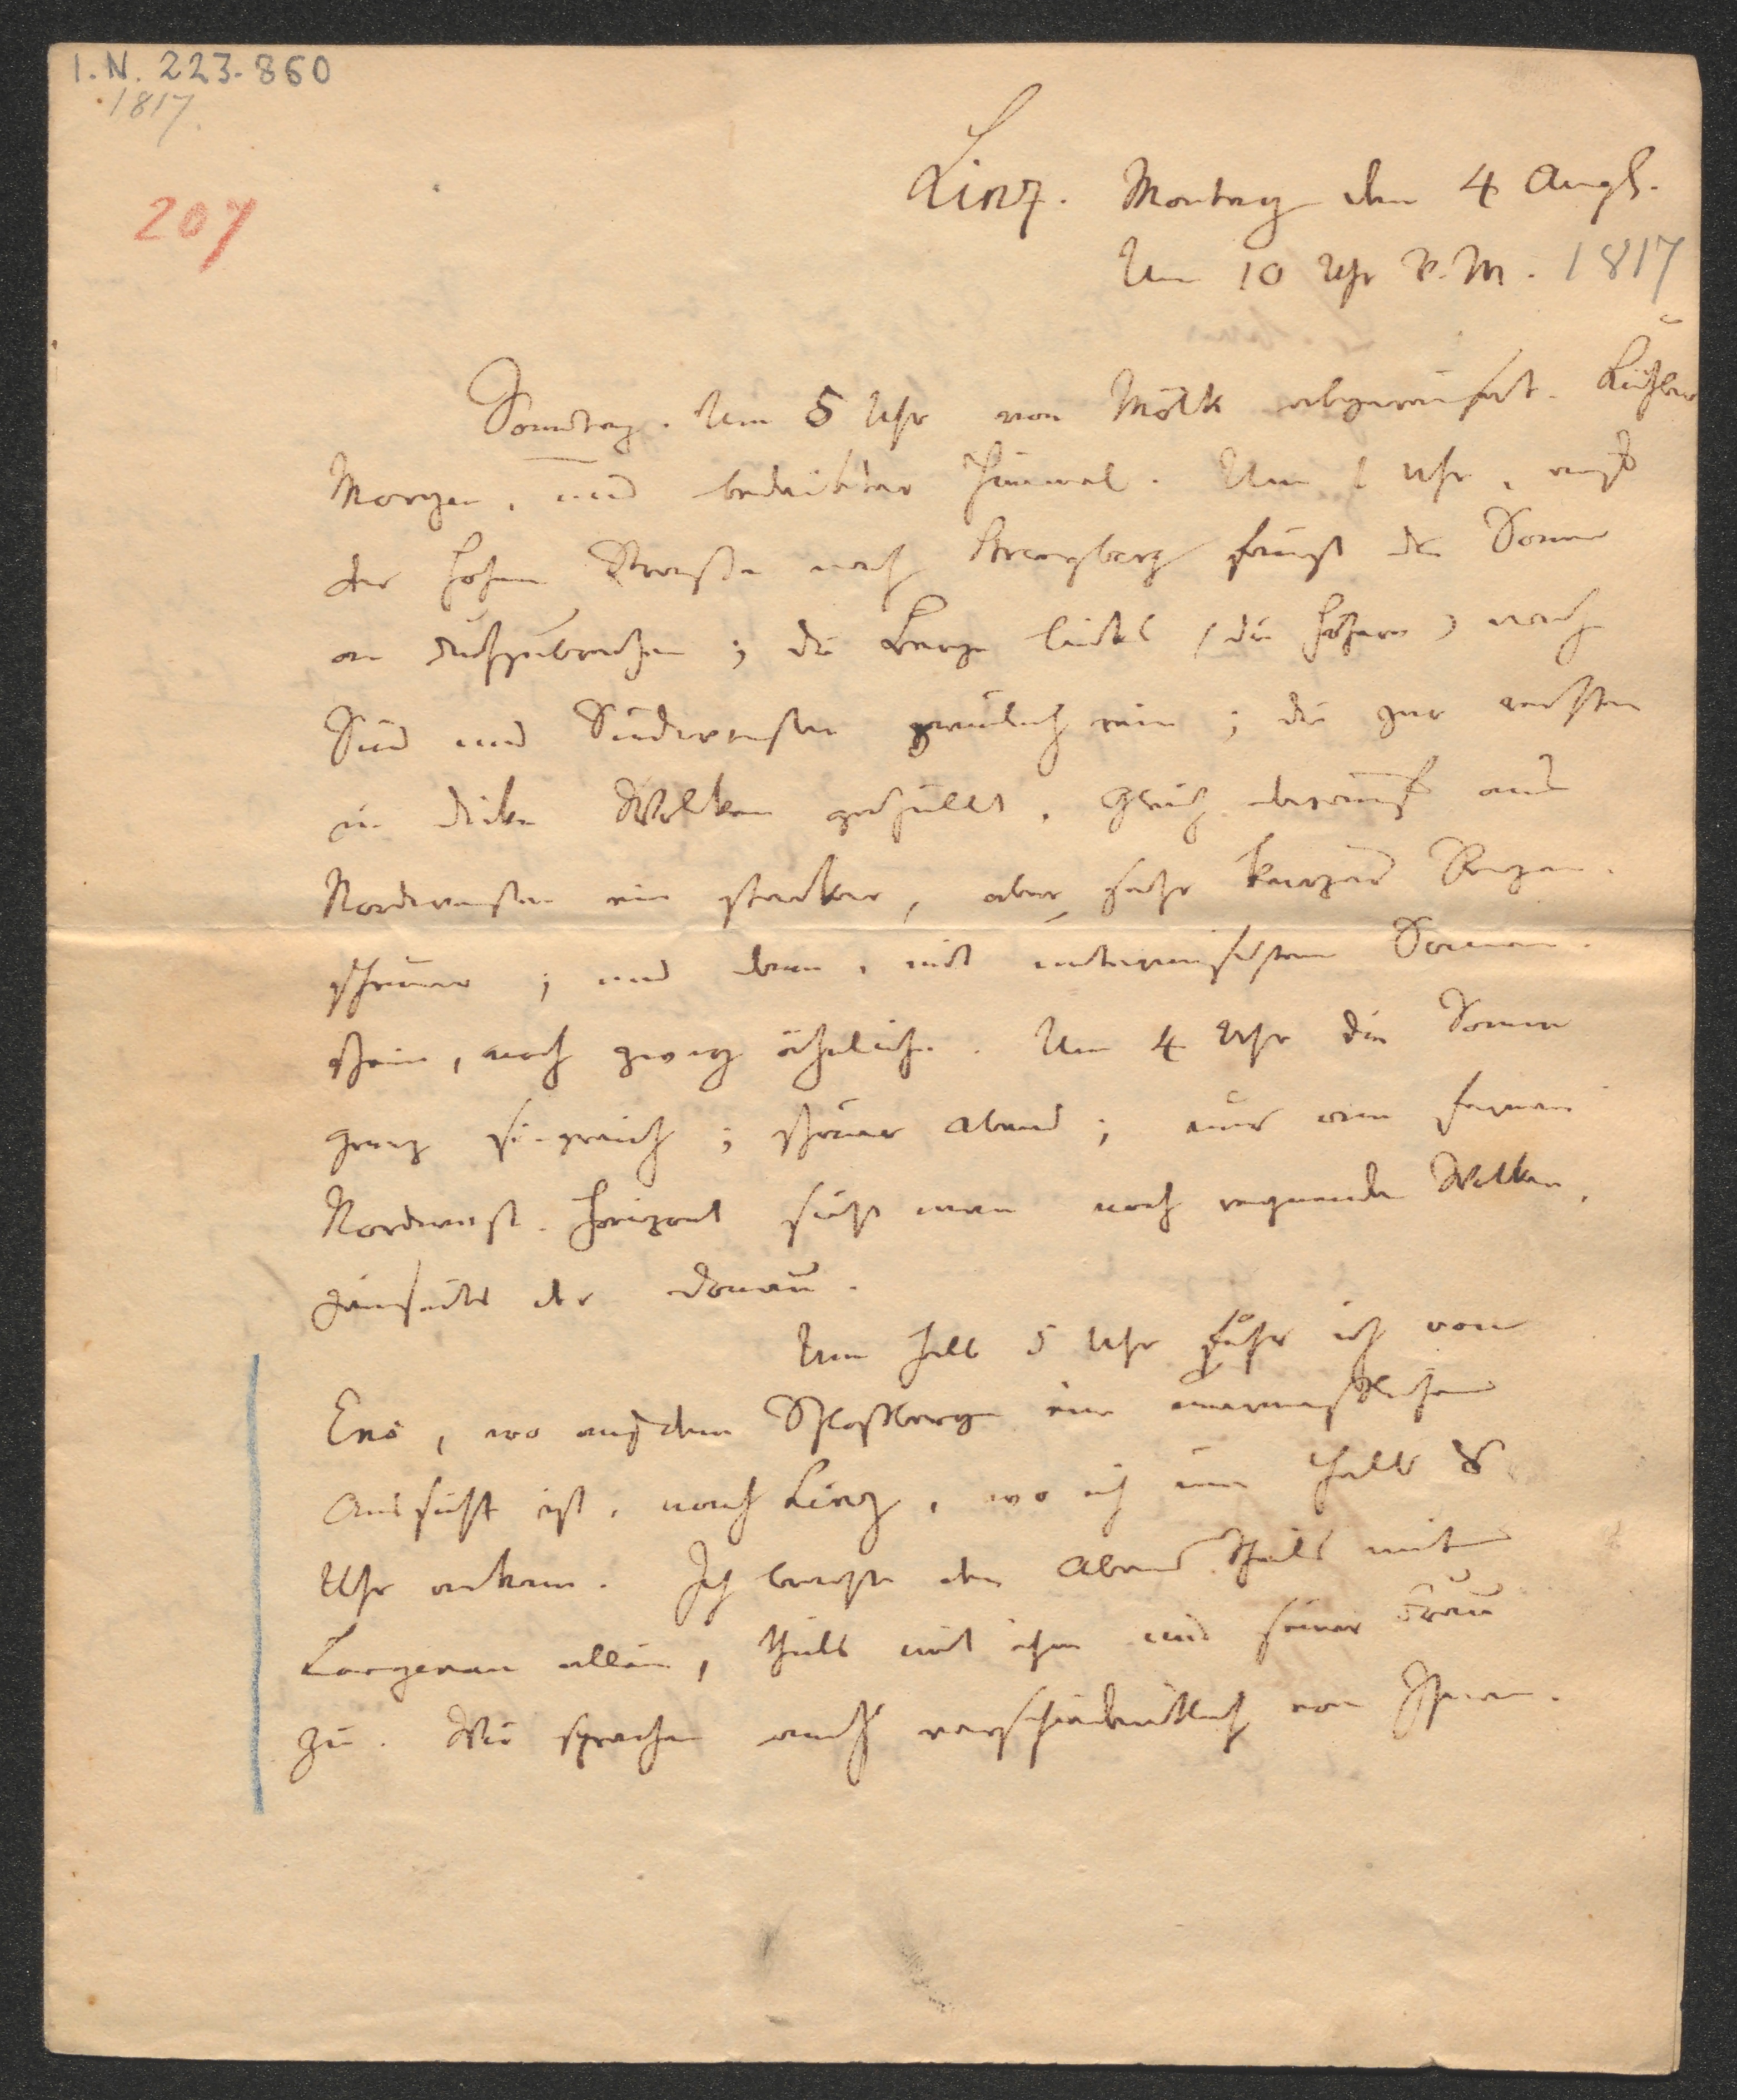 I. N. 223.860
1817.
207
Linz. Montag den 4 Augst.
Um 10 Uhr V. M. 1817
Sonntag. Um 5 Uhr von Mölk abgereißt. Kühler
Morgen, und bedeckter Himmel. Um 1 Uhr, auf
der hohen Straße nach Strengberg fängt die Sonne
an durchzubrechen; die Berge links (die höhern) nach
Süd und Südwesten ziemlich rein; die zur rechten
in dicke Wolken gehüllt. Gleich darauf aus
Nordwesten ein starker, aber sehr kurzer Regen-
schauer; und dann, mit untermischtem Sonnen-
schein, noch zwey ähnliche. Um 4 Uhr die Sonne
ganz siegreich; schöner Abend; nur am fernen
Nordwest-Horizont sieht man noch regnende Wolken,
jenseits der Donau.
Um halb 5 Uhr fuhr ich von
Ens, wo auf dem Schloßberge eine unermeßliche
Aussicht ist, nach Linz, wo ich um halb 8
Uhr ankam. Ich brachte den Abend theils mit
allein, theils mit ihm und seiner Frau
zu. Wir sprachen auch verschiedentlich von Ihnen.